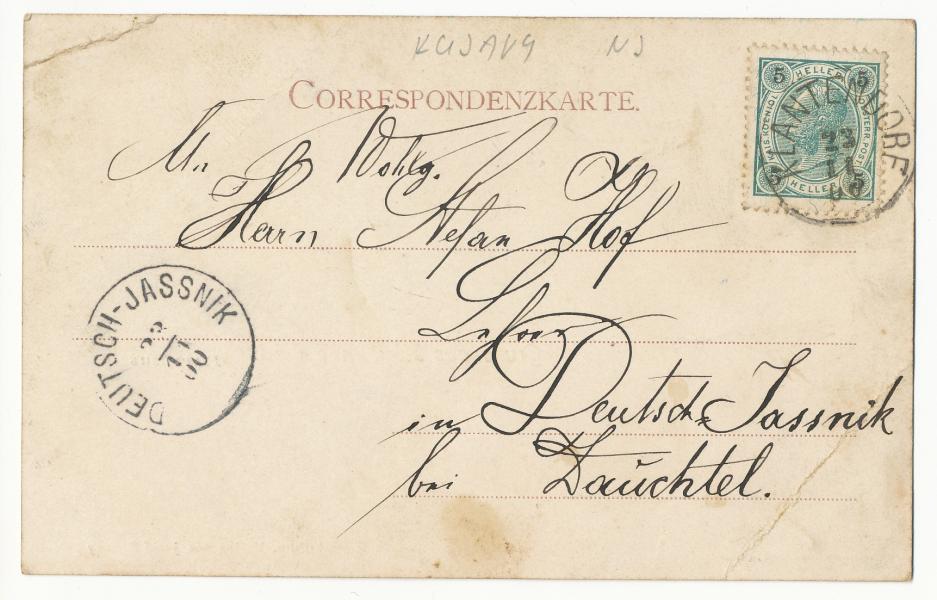 KUJAVY NJ
CORRESPONDENZKARTE.
5 HELLER 5
KAIS. KOENIGL. OESTERR. POST
5 HELLER 5
KLANTENDORF
23
11
An Wohlg.
Herrn Stefan Hof
Lehrer
in Deutsch-Jassnik
bei Dauchtel.
DEUTSCH-JASSNIK
23
11
00